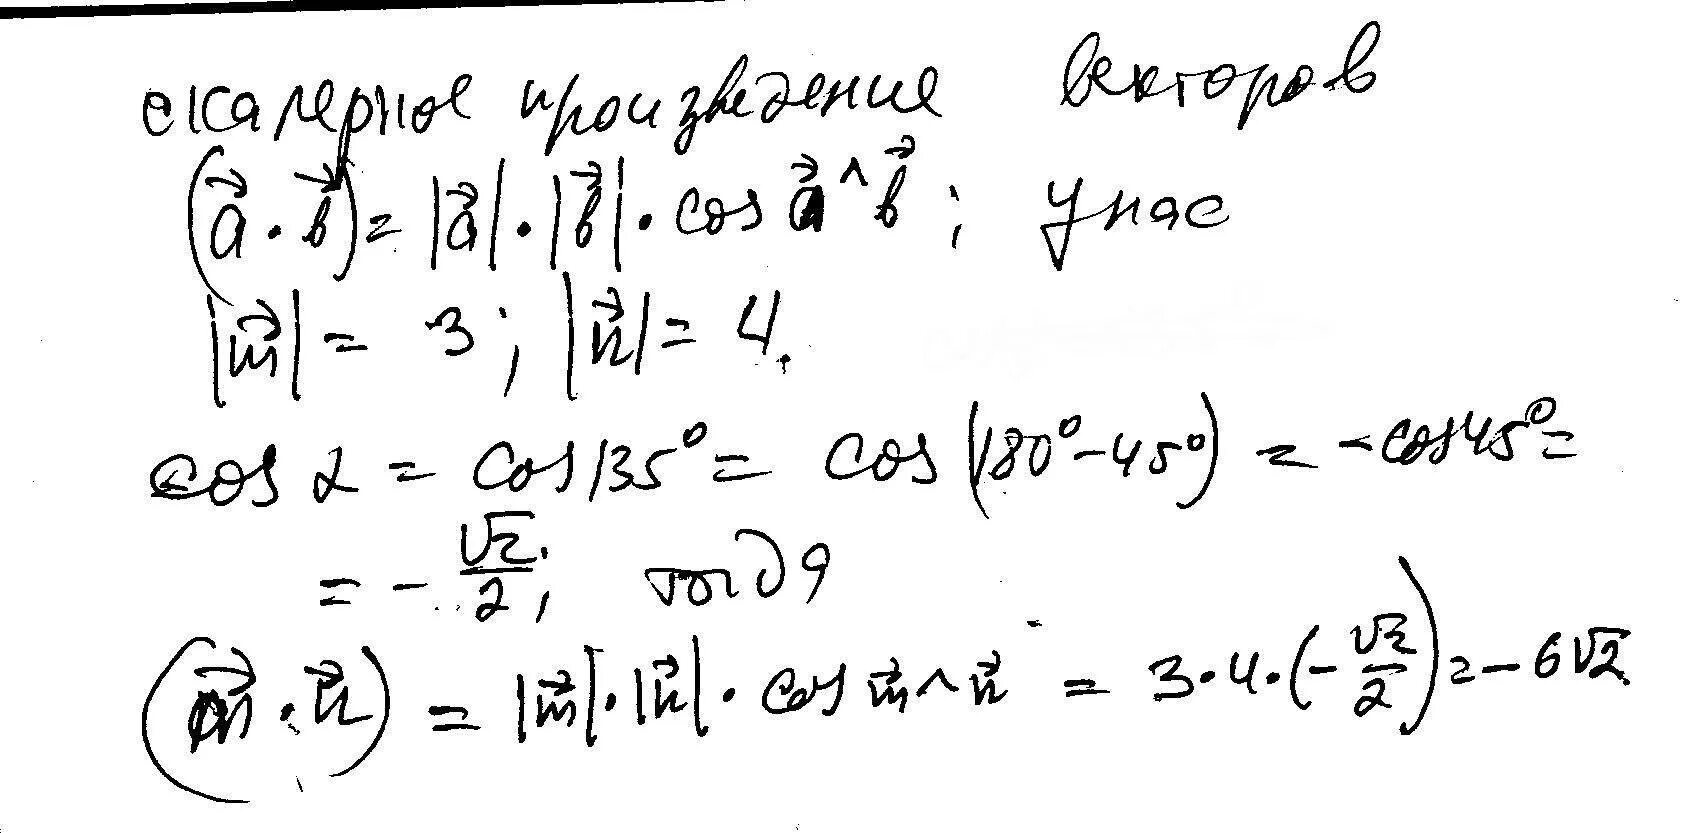 скалерное произведение векторов
(a⃗ · b⃗) = |a⃗| · |b⃗| · cos a⃗ ^ b⃗ ; у нас
|m⃗| = 3 ; |n⃗| = 4.
cos α = cos 135° = cos (180° - 45°) = - cos 45° =
= - √2/2 ; тогда
(m⃗ · n⃗) = |m⃗| · |n⃗| · cos m⃗ ^ n⃗ = 3 · 4 · (- √2/2) = - 6√2.